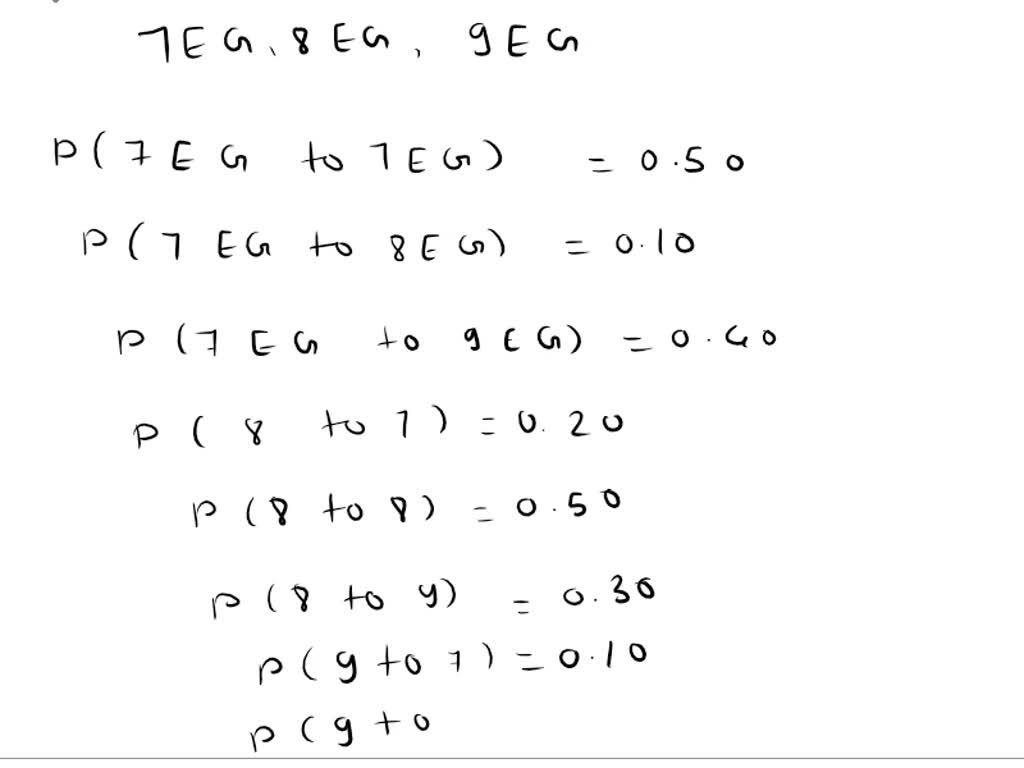 7EG, 8EG, 9EG
P(7EG to 7EG) = 0.50
P(7EG to 8EG) = 0.10
P(7EG to 9EG) = 0.40
P(8 to 7) = 0.20
P(8 to 8) = 0.50
P(8 to 9) = 0.30
P(9 to 7) = 0.10
P(9 to